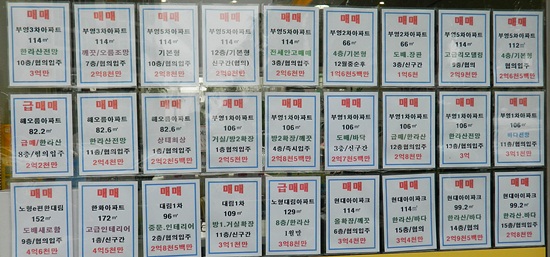 매매
부영3차아파트
114㎡
한라산전망
10층/협의입주
3억만
매매
부영3차아파트
114㎡
깨끗/오름조망
7층/협의입주
2억8천만
매매
부영5차아파트
114㎡
기본형
10층/협의입주
2억8천만
매매
부영5차아파트
114㎡
12층/기본형
신구간(협의)
매매
부영5차아파트
114㎡
전세안고매매
2억6천만
매매
부영2차아파트
66㎡
4층/기본형
12월중순후
1억6천5백만
매매
부영2차아파트
66㎡
도배,장판
3층/신구간
1억6천
매매
부영5차아파트
114㎡
고급리모델링
9층/협의입주
2억8천만
매매
부영5차아파트
112㎡
4층/기본형
협의입주
2억6천5백만
급매매
해오름아파트
82.2㎡
급매/한라산
8층/협의입주
2억2천만
매매
해오름아파트
82.6㎡
한라산전망
11층/협의입주
2억4천만
매매
해오름아파트
82.6㎡
상태최상
2억2천5백만
매매
부영1차아파트
106㎡
거실/방2확장
1층/협의입주
2억5천만
매매
부영1차아파트
106㎡
방2확장/깨끗
4층/즉시입주
2억8천만
매매
부영1차아파트
106㎡
도배/바닥
3층/신구간
2억7천5백만
매매
부영1차아파트
106㎡
급매/한라산
12층/협의입주
2억8천만
매매
부영1차아파트
106㎡
한라산전망
13층/협의입주
매매
부영1차아파트
106㎡
바다전망
11층/협의입주
3억1천만
매매
노형e편한대림
152㎡
도배새로함
9층/협의입주
4억6천만
매매
한화아파트
172㎡
고급인테리어
1층/신구간
4억6천만
매매
대림1차
96㎡
중문,인테리어
2억8천5백만
매매
대림1차
109㎡
방1,거실확장
11층/신구간
3억1천만
급매매
노형뜨란채
129㎡
8층/한라산
1월말
3억8천만
매매
현대아이파크
114㎡
올확장/깨끗
6층/협의입주
3억4천만
매매
현대아이파크
114㎡
한라산/바다
15층/협의입주
3억4천만
매매
현대아이파크
99.2㎡
한라산/바다
14층/협의입주
2억9천5백만
매매
현대아이파크
99.2㎡
한라산/바다
15층/협의입주
2억8천5백만